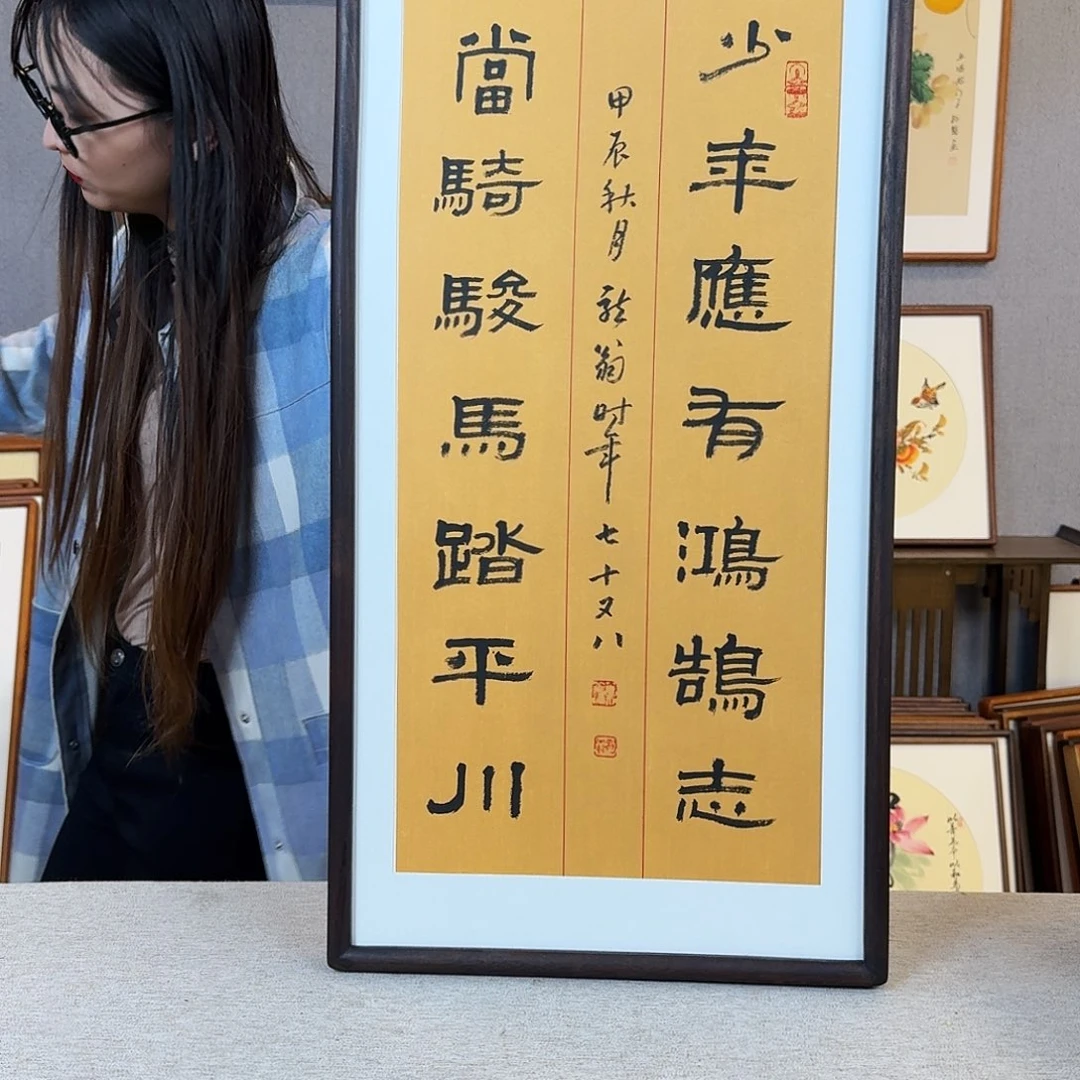 少年應有鴻鵠志
甲辰秋月 龍翁时年七十又八
當騎駿馬踏平川